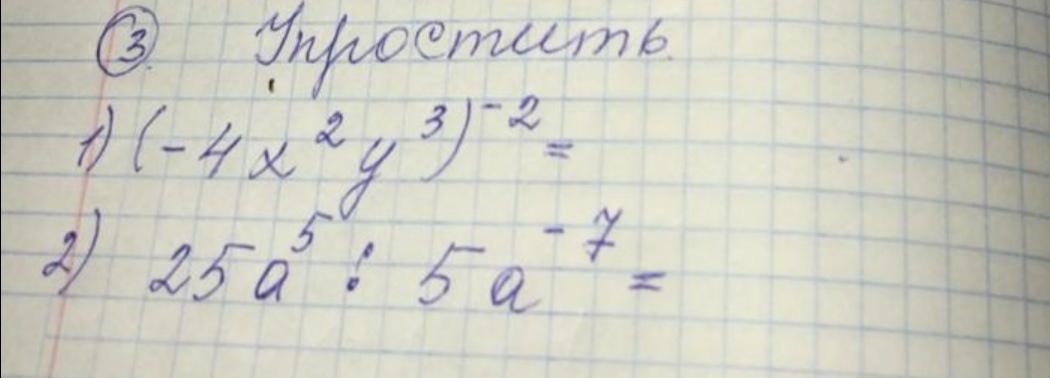 ③. Упростить.
1) (-4x²y³)⁻² =
2) 25a⁵ : 5a⁻⁷ =